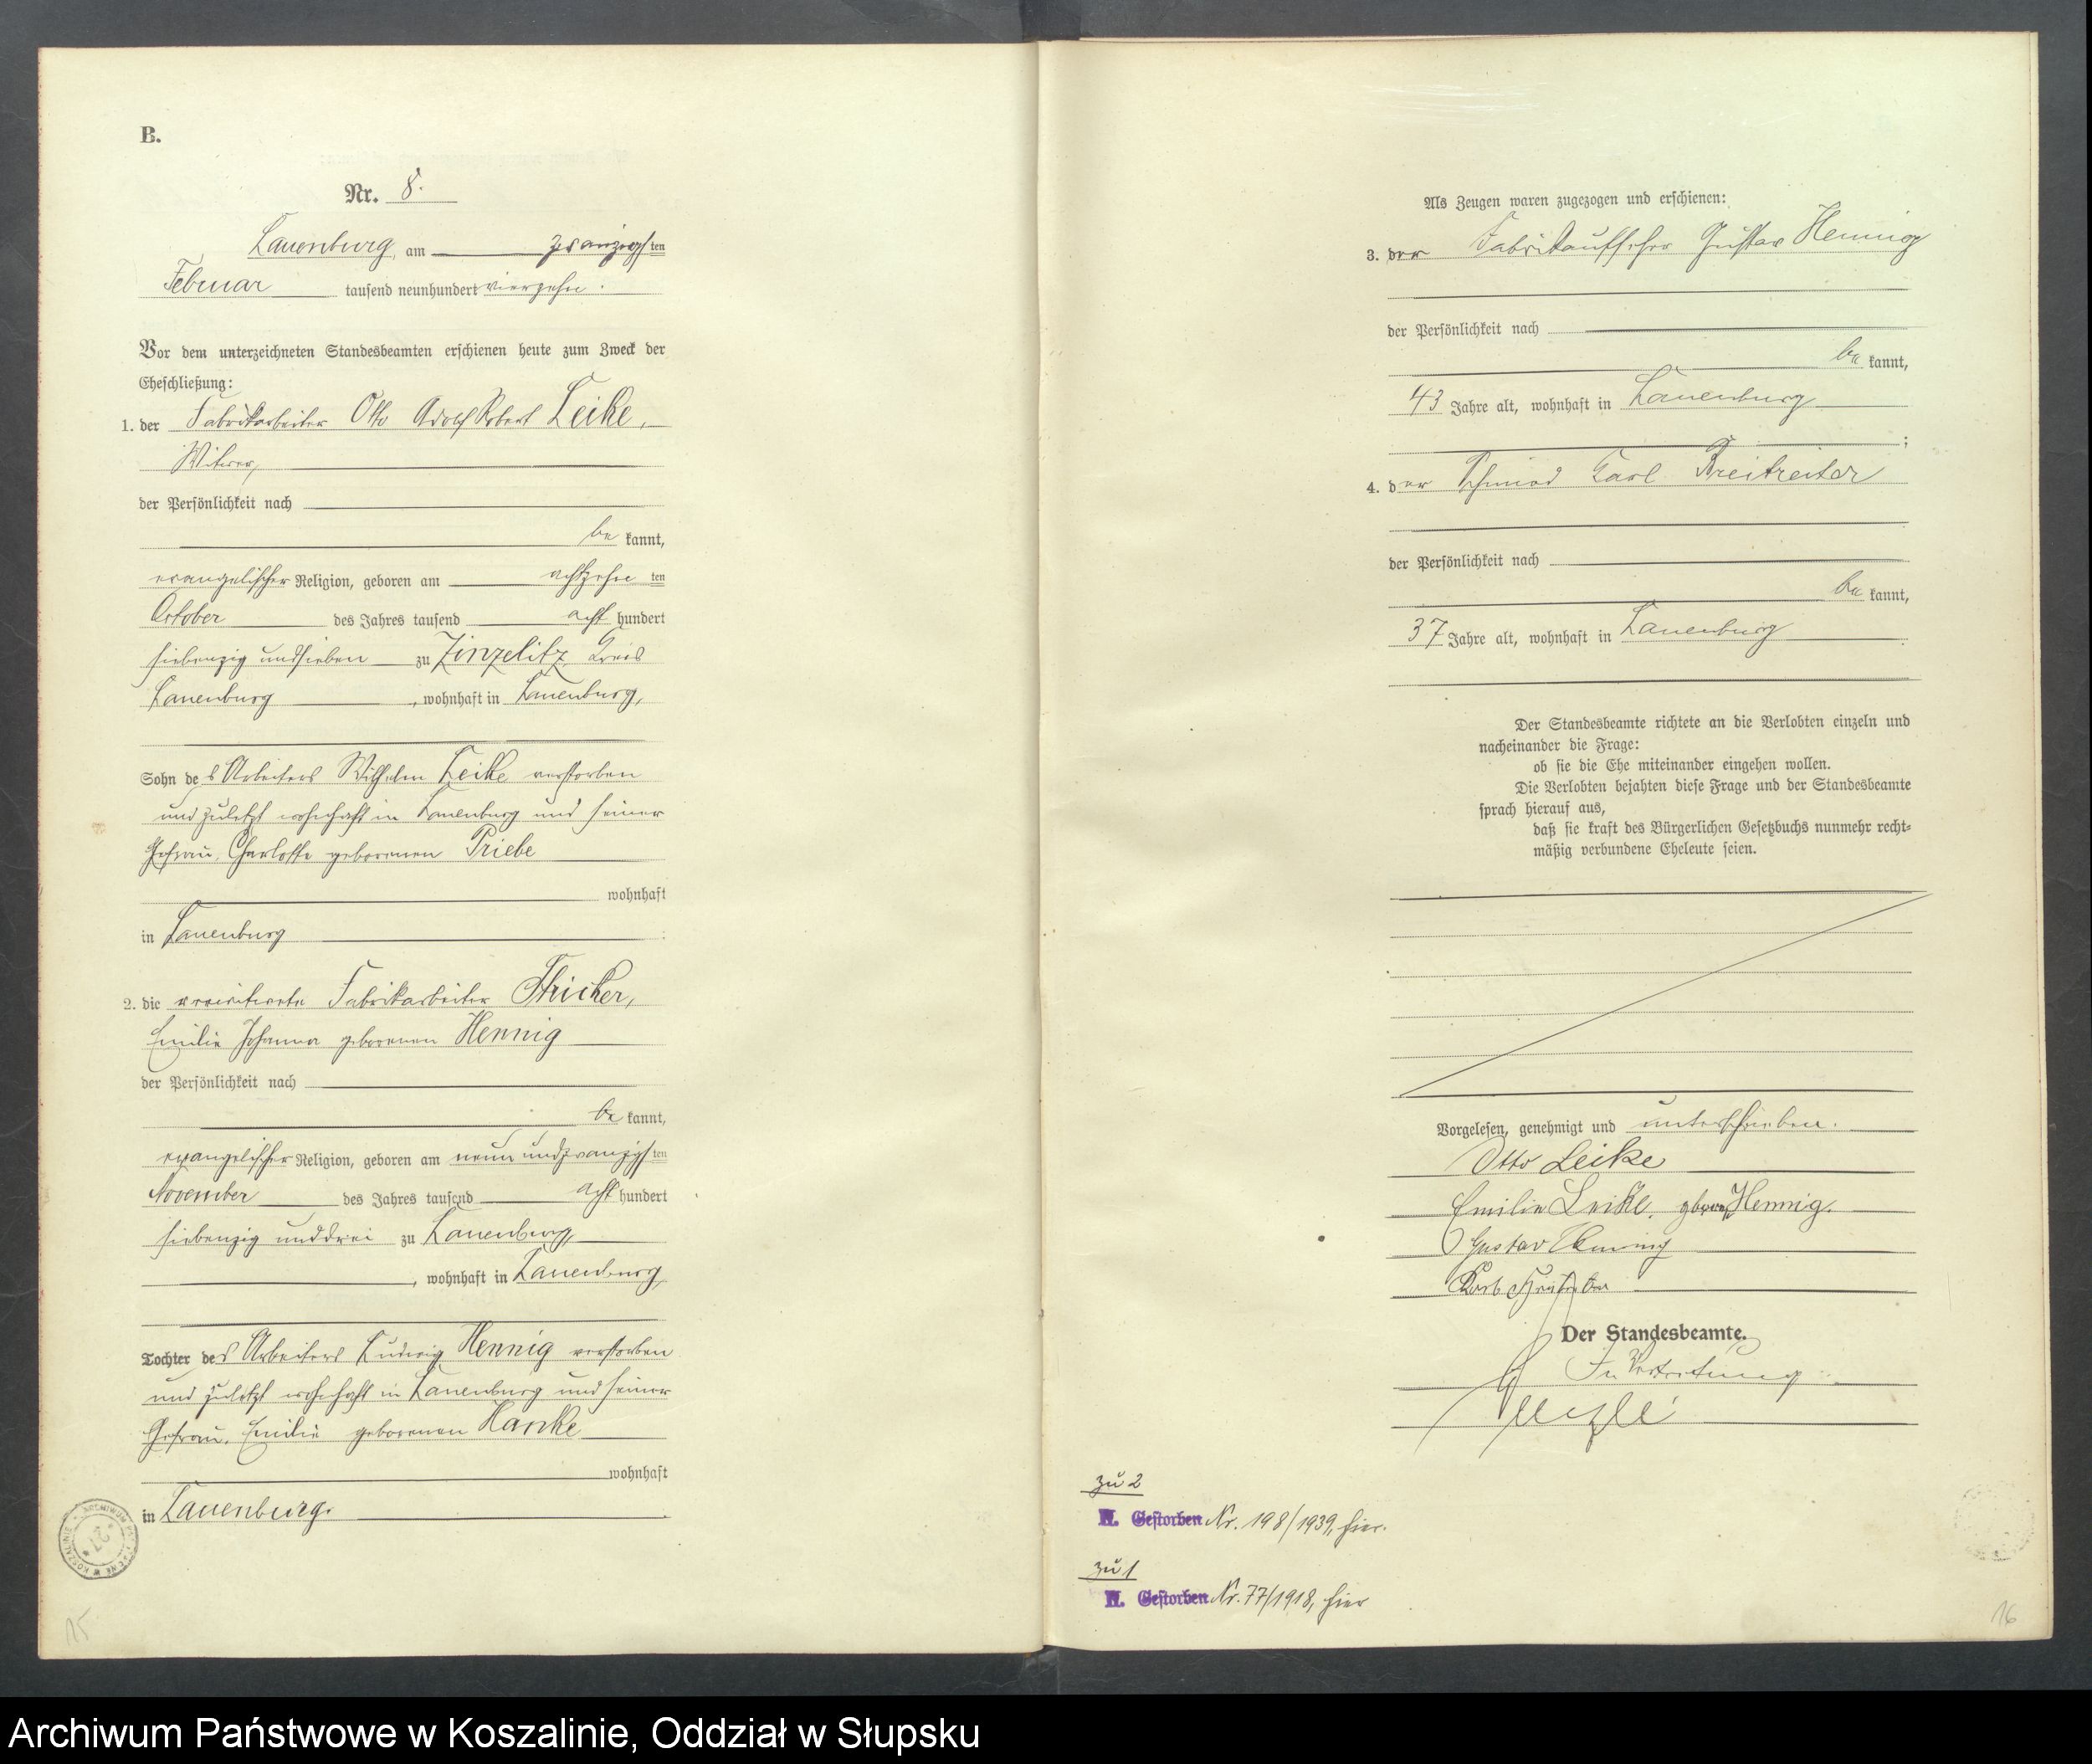 B.
Nr. 8.
Lauenburg, am zwanzigsten
Februar tausend neunhundert vierzehn.
Vor dem unterzeichneten Standesbeamten erschienen heute zum Zweck der
Eheschließung:
1. der Fabrikarbeiter Otto Adolf Robert Leike,
Witwer,
der Persönlichkeit nach
be kannt,
evangelischer Religion, geboren am achtzehn ten
October des Jahres tausend acht hundert
siebenzig und sieben zu Zinzelitz, Kreis
Lauenburg, wohnhaft in Lauenburg,
Sohn des Arbeiters Wilhelm Leike verstorben
und zuletzt wohnhaft in Lauenburg und seiner
Ehefrau, Charlotte geborenen Priebe
wohnhaft
in Lauenburg
2. die verwitwete Fabrikarbeiter
Emilie Johanna geborenen Hennig
der Persönlichkeit nach
be kannt,
evangelischer Religion, geboren am neun und zwanzigsten
November des Jahres tausend acht hundert
siebenzig und drei zu Lauenburg,
, wohnhaft in Lauenburg
Tochter des Arbeiters Ludwig Hennig verstorben
und zuletzt wohnhaft in Lauenburg und seiner
Ehefrau, Emilie geborenen Hanke
wohnhaft
in Lauenburg.
ARCHIWUM PAŃSTWOWE W KOSZALINIE
* 27 *
15
Als Zeugen waren zugezogen und erschienen:
3. der Fabrikaufseher Gustav Hennig
der Persönlichkeit nach
be kannt,
43 Jahre alt, wohnhaft in Lauenburg
;
4. der Schmied Carl Breitreiter
der Persönlichkeit nach
be kannt,
37 Jahre alt, wohnhaft in Lauenburg
Der Standesbeamte richtete an die Verlobten einzeln und
nacheinander die Frage:
ob sie die Ehe miteinander eingehen wollen.
Die Verlobten bejahten diese Frage und der Standesbeamte
sprach hierauf aus,
daß sie kraft des Bürgerlichen Gesetzbuchs nunmehr recht-
mäßig verbundene Eheleute seien.
Vorgelesen, genehmigt und unterschrieben.
Otto Leike
Emilie Leike, geborene Hennig.
Gustav Hennig
Der Standesbeamte.
In Vertretung
zu 2
Gestorben Nr. 198/1939, hier.
zu 1
Gestorben Nr. 77/1918, hier
16
Archiwum Państwowe w Koszalinie, Oddział w Słupsku